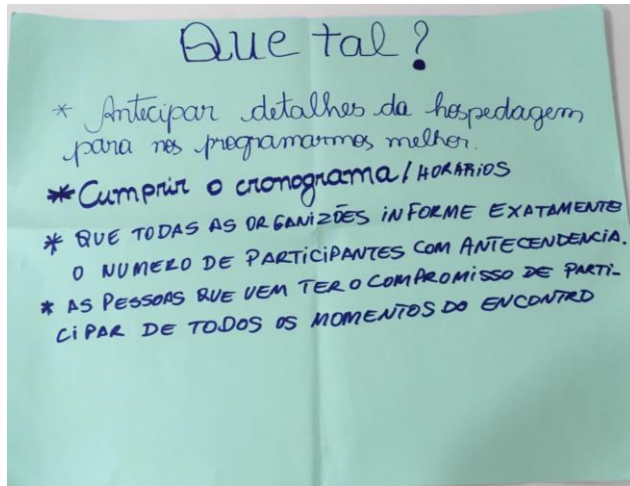 Que tal?
* Antecipar detalhes da hospedagem
para nos programarmos melhor.
* Cumprir o cronograma / HORÁRIOS
* QUE TODAS AS ORGANIZÕES INFORME EXATAMENTE
O NUMERO DE PARTICIPANTES COM ANTECENDENCIA.
* AS PESSOAS QUE VEM TER O COMPROMISSO DE PARTI-
CIPAR DE TODOS OS MOMENTOS DO ENCONTRO